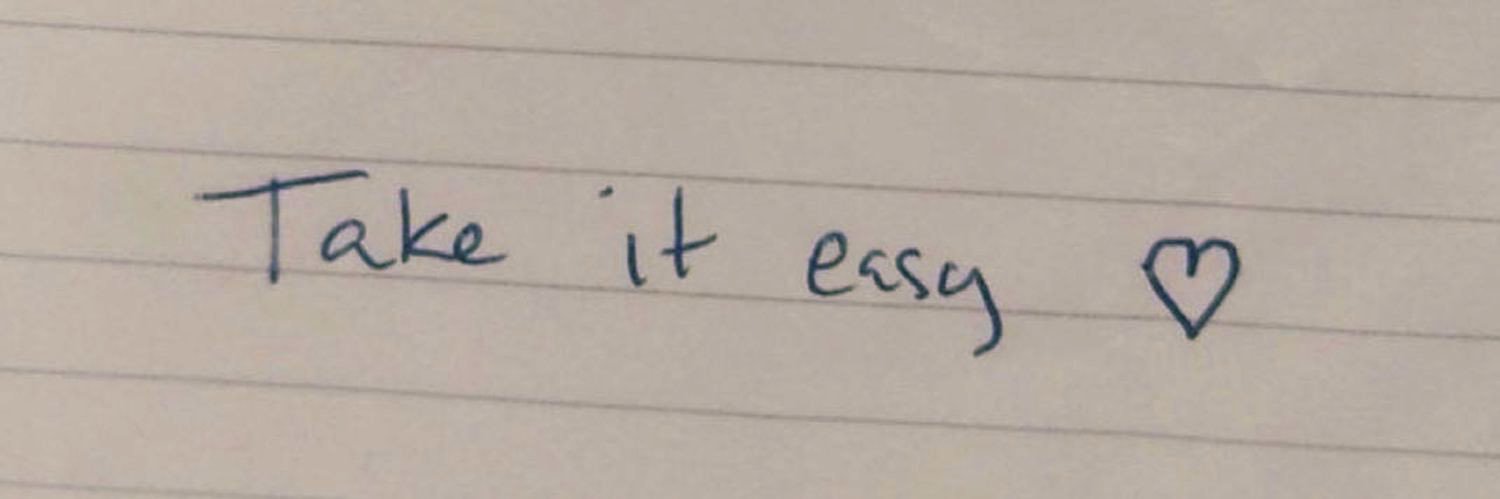 Take it easy ♡